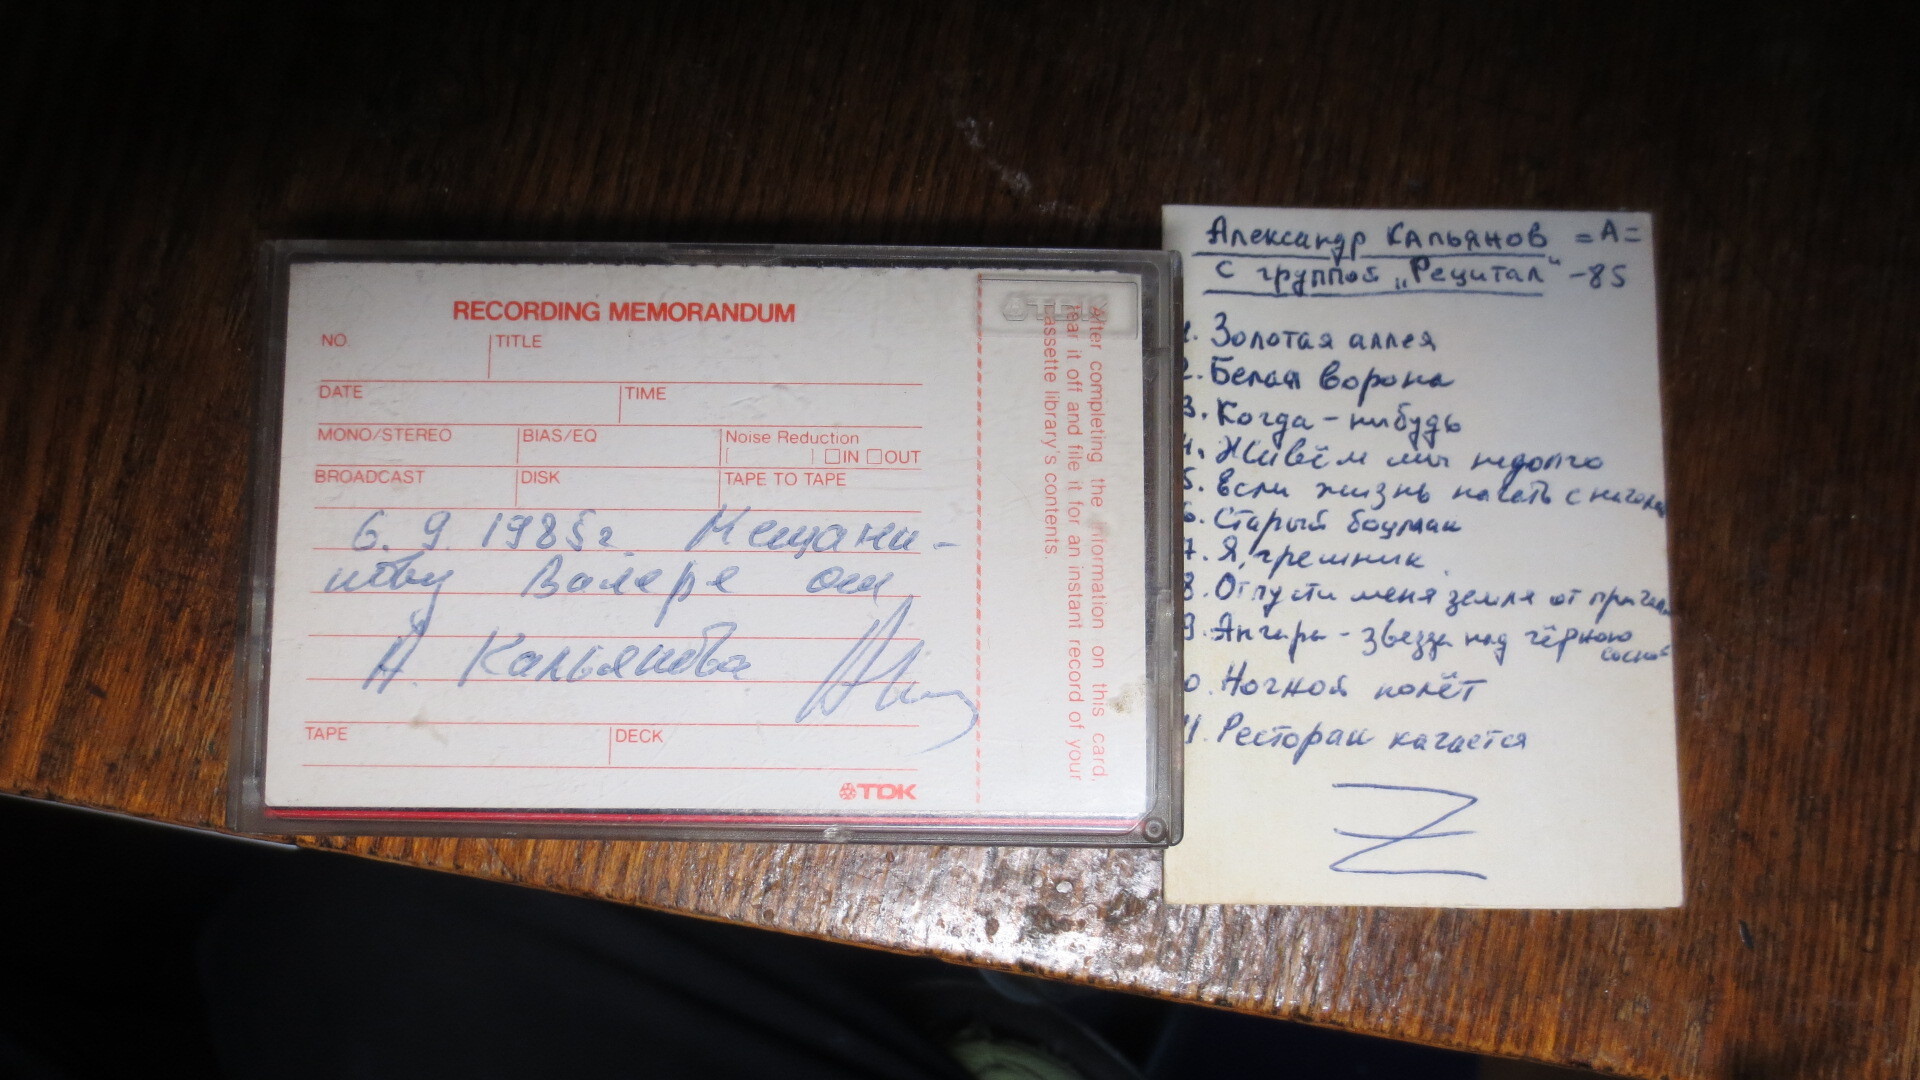 RECORDING MEMORANDUM
NO. TITLE
DATE TIME
MONO/STEREO BIAS/EQ Noise Reduction
IN OUT
BROADCAST DISK TAPE TO TAPE
6. 9. 1985г. Мещани-
нову Валере от
А. Кальянова
TAPE DECK
TDK
TDK
After completing the information on this card,
tear it off and file it for an instant record of your
cassette library's contents.
Александр Кальянов =А=
с группой „Рецитал" -85
1. Золотая аллея
2. Белая ворона
3. Когда-нибудь
4. Живём мы недолго
5. Если жизнь начать с начала
6. Старый боцман
7. Я, грешник
8. Отпусти меня земля от причала
9. Ангара - звезда над чёрною
сосной
10. Ночной полёт
11. Ресторан качается